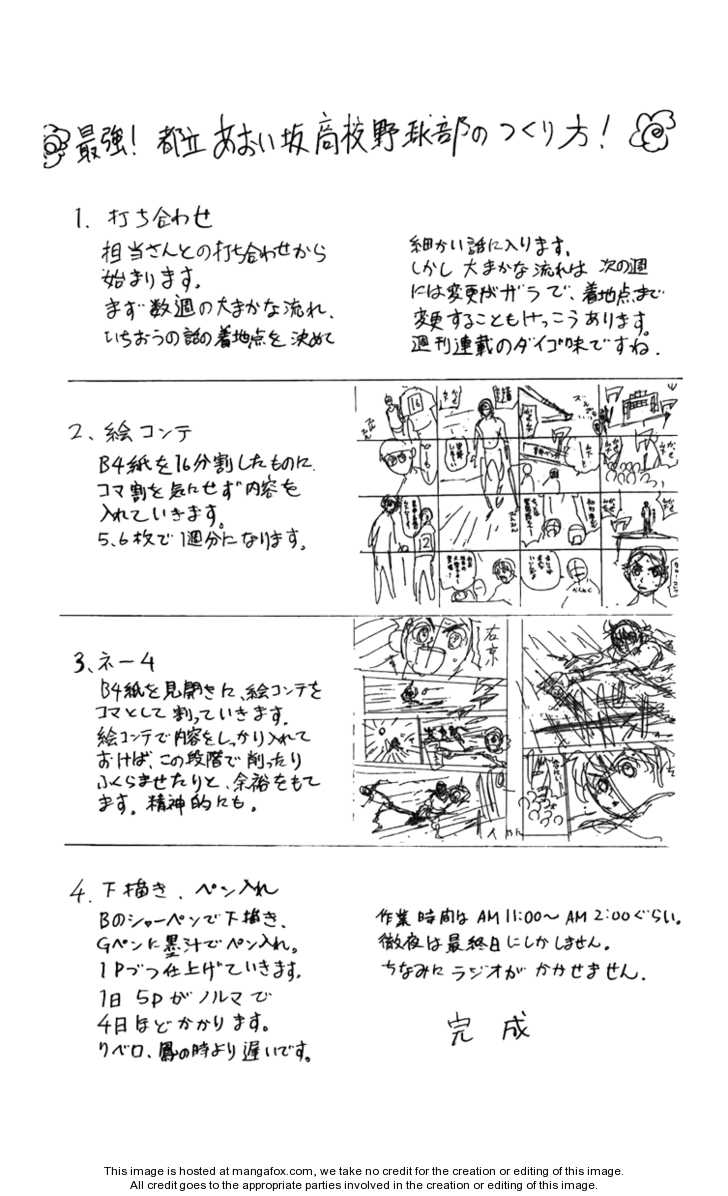 最強！都立あおい坂高校野球部のつくり方！
1. 打ち合わせ
担当さんとの打ち合わせから
始まります。
まず数週の大まかな流れ、
いちおうの話の着地点を決めて
細かい話に入ります。
しかし大まかな流れは次の週
には変更がザラで、着地点まで
変更することもけっこうあります。
週刊連載のダイゴ味ですね.
2、絵コンテ
B4紙を16分割したものに、
コマ割を気にせず内容を
入れていきます。
5、6枚で1週分になります。
3、ネーム
B4紙を見開きに、絵コンテを
コマとして割っていきます.
絵コンテで内容をしっかり入れて
おけば、この段階で削ったり
ふくらませたりと、余裕をもて
ます。精神的にも。
右京
4. 下描き、ペン入れ
Bのシャーペンで下描き、
Gペンに墨汁でペン入れ。
1Pづつ仕上げていきます.
1日5Pがノルマで
4日ほどかかります。
リベロ、鳳の時より遅いです。
作業時間はAM11:00〜AM2:00ぐらい。
徹夜は最終日にしかしません。
ちなみにラジオがかかせません.
完成
This image is hosted at mangafox.com, we take no credit for the creation or editing of this image.
All credit goes to the appropriate parties involved in the creation or editing of this image.